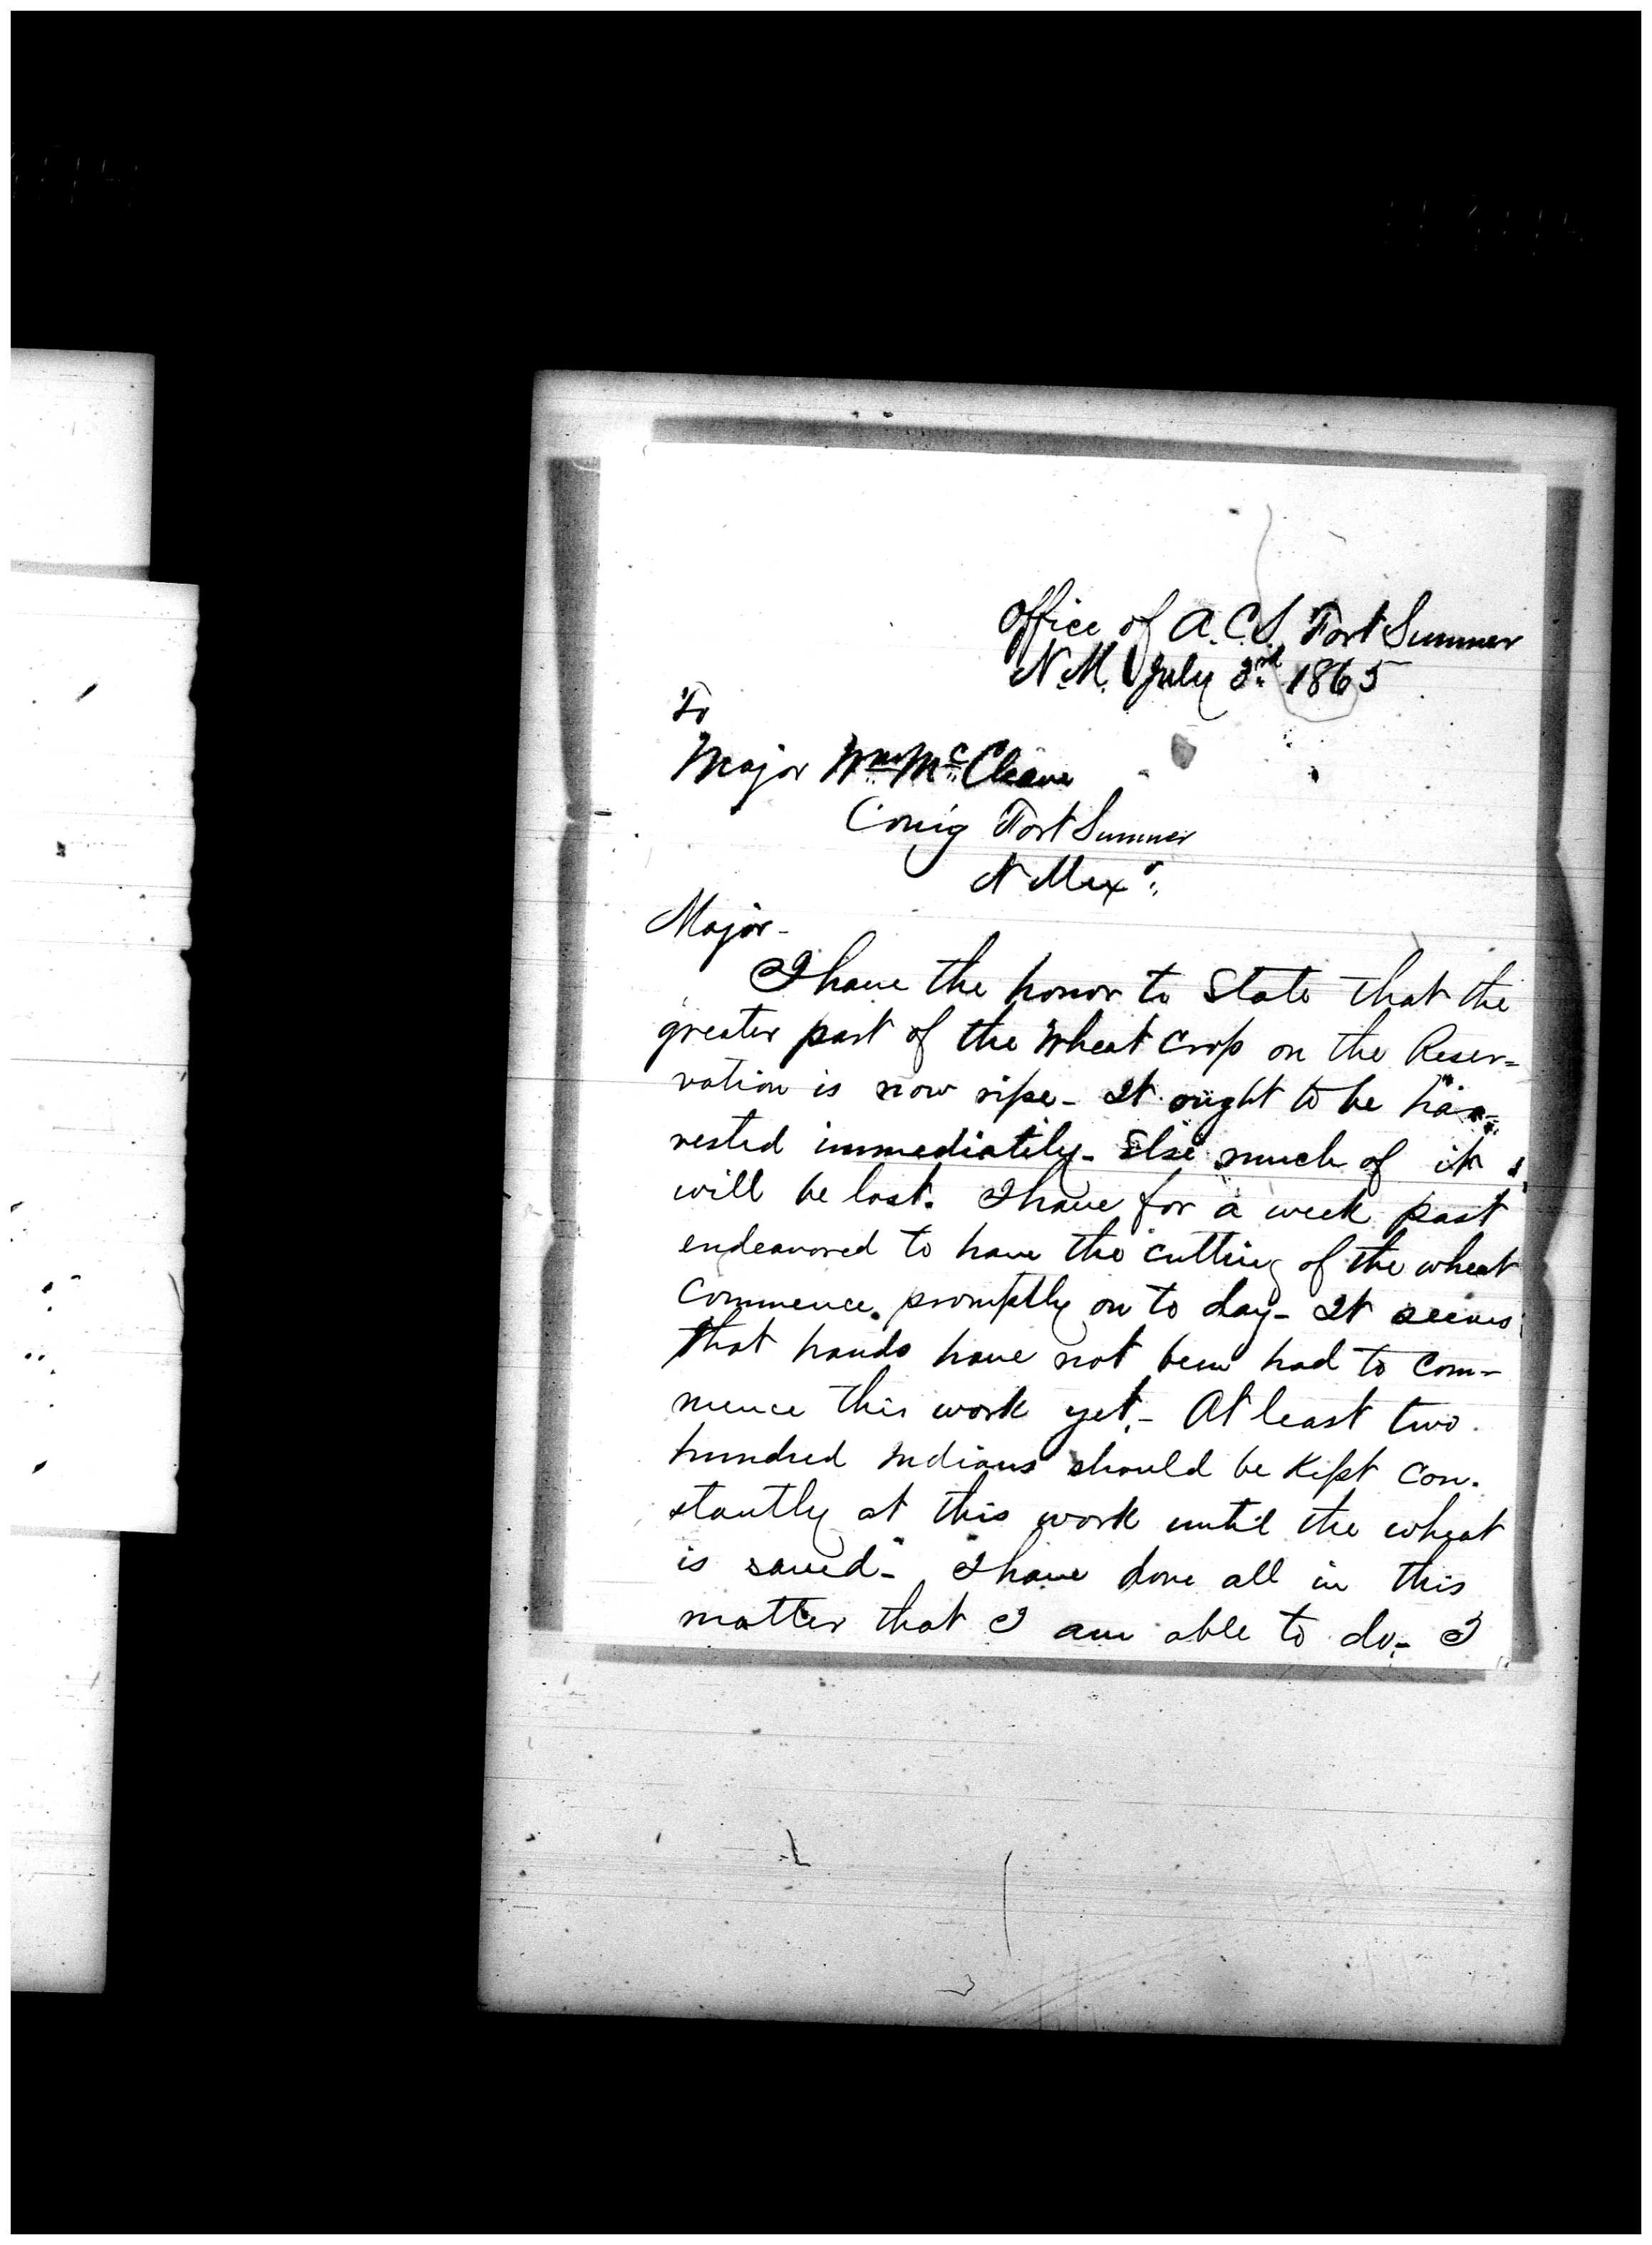 Office of A.C.S. Fort Sumner
N.M. July 3rd 1865
To
Major Wm McCleave
Comg Fort Sumner
N Mexo.
Major-
I have the honor to State that the
greater part of the Wheat Crop on the Reser=
vation is now ripe- It ought to be har=
vested immediately- Else much of it
will be lost. I have for a week past
endeavored to have the cutting of the wheat
Commence promptly on to day- It seems
that hands have not been had to com-
mence this work yet.- At least two
hundred Indians should be Kept Con-
stantly at this work until the wheat
is saved- I have done all in this
matter that I am able to do.- I